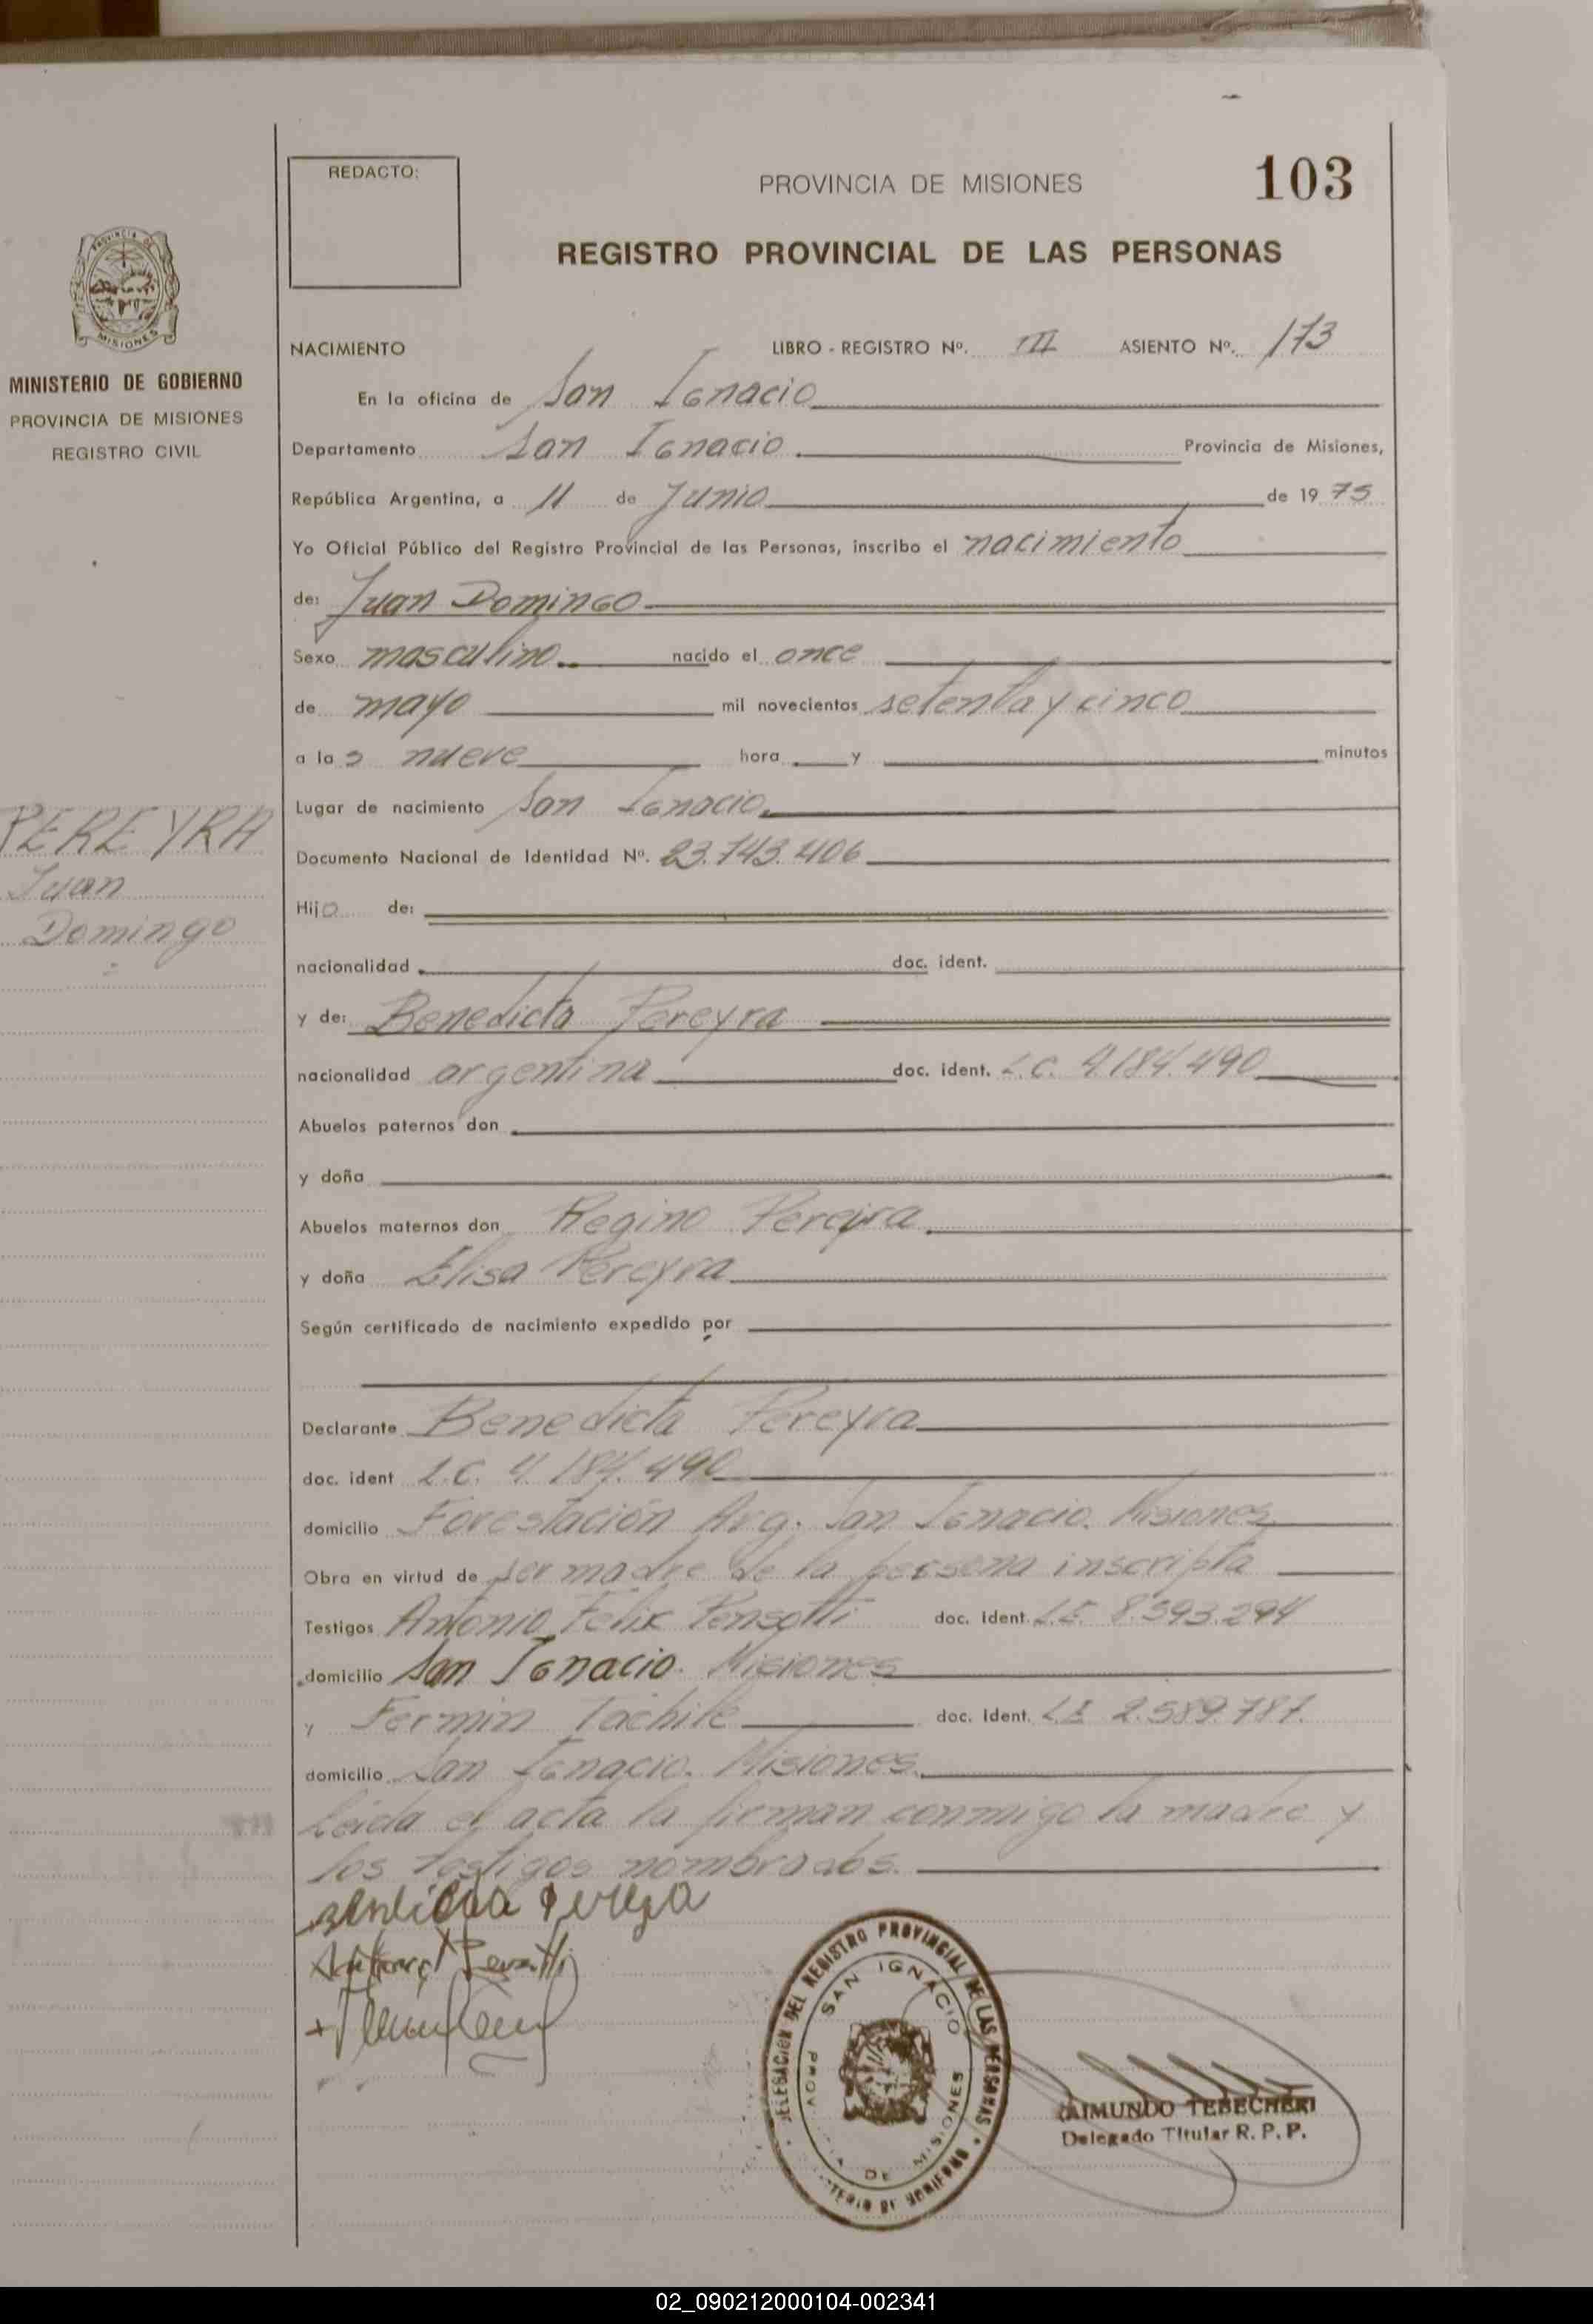 103
REDACTO:
PROVINCIA DE MISIONES
REGISTRO PROVINCIAL DE LAS PERSONAS
MISIONES
MINISTERIO DE GOBIERNO
PROVINCIA DE MISIONES
REGISTRO CIVIL
NACIMIENTO LIBRO - REGISTRO Nº. III ASIENTO Nº. 173
En la oficina de San Ignacio
Departamento San Ignacio Provincia de Misiones,
República Argentina, a 11 de Junio de 1975
Yo Oficial Público del Registro Provincial de las Personas, inscribo el nacimiento
de: Juan Domingo
Sexo masculino nacido el once
de mayo mil novecientos setenta y cinco
a las nueve hora y minutos
Lugar de nacimiento San Ignacio
PEREYRA
Juan
Domingo
Documento Nacional de Identidad Nº. 23.743.406
Hijo de:
nacionalidad doc. ident.
y de: Benedicta Pereyra
nacionalidad argentina doc. ident. L.C. 4.184.490
Abuelos paternos don
y doña
Abuelos maternos don Regino Pereira
y doña Elisa Pereyra
Según certificado de nacimiento expedido por
Declarante Benedicta Pereyra
doc. ident L.C. 4.184.490
domicilio Forestación Arg. San Ignacio. Misiones
Obra en virtud de ser madre de la persona inscripta
Testigos Antonio Felix Pensotti doc. ident. L.E. 8.393.294
domicilio San Ignacio. Misiones
y Fermin Tachile doc. Ident. L.E. 2.589.787.
domicilio San Ignacio. Misiones.
Leida el acta la firman conmigo la madre y
los testigos nombrados.
DELEGACION DEL REGISTRO PROVINCIAL DE LAS PERSONAS
SAN IGNACIO
DE MISIONES
RAIMUNDO TEBECHERI
Delegado Titular R. P. P.
02_090212000104-002341